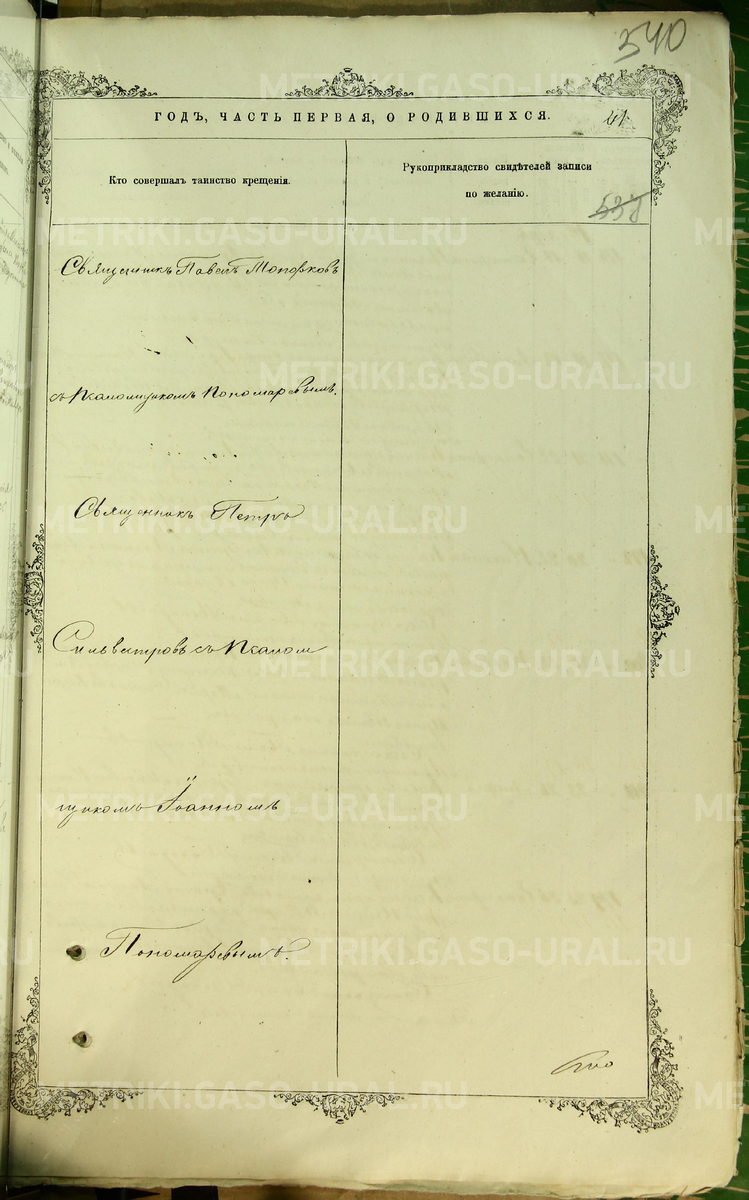 540
ГОДЪ, ЧАСТЬ ПЕРВАЯ, О РОДИВШИХСЯ.
41
Кто совершалъ таинство крещенія.
Рукоприкладство свидѣтелей записи
по желанію.
538
Священникъ Павелъ Топорковъ
съ Псаломщикомъ Пономаревымъ.
Священникъ Петръ
Сильвестровъ съ Псалом
щикомъ Іоанномъ
Пономаревымъ.
METRIKI.GASO-URAL.RU